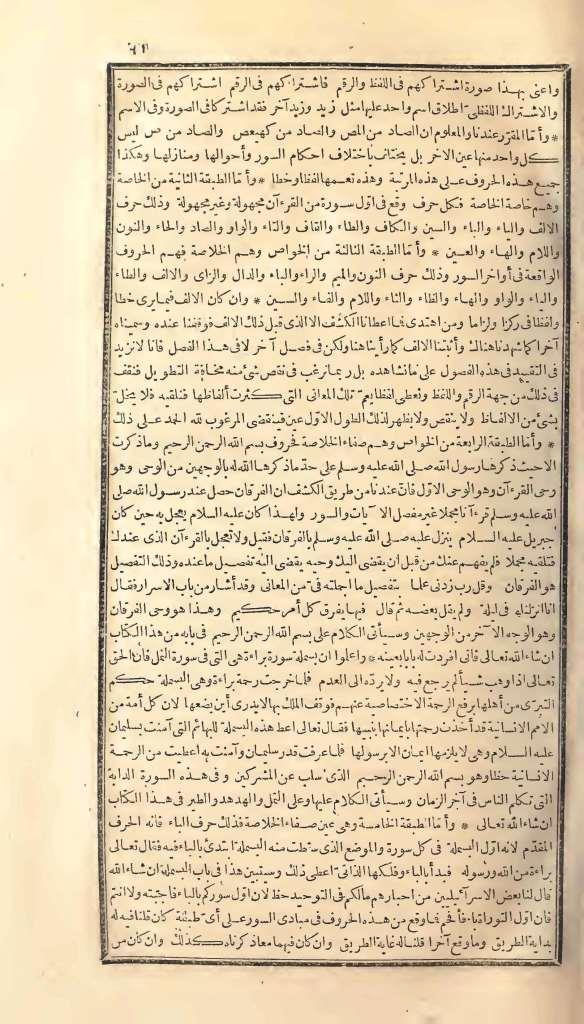 ٦١
واعنى بهذا صورة اشتراكهم فى اللفظ والرقم فاشتراكهم فى الرقم اشتراكهم فى الصورة
والاشتراك اللفظى اطلاق اسم واحد عليها مثل زيد وزيد آخر فقد اشتركا فى الصورة وفى الاسم
* وأما المقرر عندنا والمعلوم ان الصاد من المص والصاد من كهيعص والصاد من ص ليس
كل واحد منها عين الاخر بل يختلف باختلاف احكام السور وأحوالها ومنازلها وهكذا
جميع هذه الحروف على هذه المرتبة وهذه تعمها لفظا وخطا * وأما الطبقة الثانية من الخاصة
وهم خاصة الخاصة فكل حرف وقع فى أول سورة من القرءآن مجهولة وغير مجهولة وذلك حرف
الالف والياء والباء والسين والكاف والطاء والقاف والتاء والواو والصاد والحاء والنون
واللام والهاء والعين * وأما الطبقة الثالثة من الخواص وهم الخلاصة فهم الحروف
الواقعة فى أواخر السور وذلك حرف النون والميم والراء والباء والدال والزاى والالف والطاء
والياء والواو والهاء والظاء والثاء واللام والفاء والسين * وان كان الالف فيما يرى خطا
ولفظا فى ركزا ولزاما ومن اهتدى فما اعطانا الكشف الا الذى قبل ذلك الالف فوقفنا عنده وسميناه
آخرا كما شهدناه هناك وأثبتنا الالف كما رأيناه هنا ولكن فى فصل آخر لا فى هذا الفصل فانا لا نزيد
فى التقييد فى هذه الفصول على ما نشاهده بل ربما نرغب فى نقص شئ منه مخافة التطويل فنقف
فى ذلك من جهة الرقم واللفظ ونعطى لفظا يعم تلك المعانى التى كثرت ألفاظها فنلقيه فلا يخل
بشئ من الالفاظ ولا ينقص ولا يظهر لذلك الطول الاول عين فينقضى المرغوب لله الحمد على ذلك
* وأما الطبقة الرابعة من الخواص وهم صفاء الخلاصة فحروف بسم الله الرحمن الرحيم وما ذكرت
الا حيث ذكرها رسول الله صلى الله عليه وسلم على حد ما ذكرها الله له بالوجهين من الوحى وهو
وحى القرءآن وهو الوحى الاول فان عندنا من طريق الكشف ان الفرقان حصل عند رسول الله صلى
الله عليه وسلم قرءآنا مجملا غير مفصل الآيات والسور ولهذا كان عليه السلام يعجل به حين كان
جبريل عليه السلام ينزل عليه صلى الله عليه وسلم بالفرقان فقيل ولا تعجل بالقرءآن الذى عندك
فتلقيه مجملا فلا يفهم عنك من قبل ان يقضى اليك وحيه يقضى اليه تفصيل ما عنده وذلك التفصيل
هو الفرقان وقل رب زدنى علما بتفصيل ما اجملته فى من المعانى وقد أشار من باب الاسرار فقال
انا انزلناه فى ليلة ولم يقل بعضه ثم قال فيها يفرق كل أمر حكيم وهذا هو وحى الفرقان
وهو الوجه الآخر من الوجهين وسيأتى الكلام على بسم الله الرحمن الرحيم فى بابه من هذا الكتاب
ان شاء الله تعالى فانى افردت له بابا بعينه * واعلموا ان بسملة سورة براءة هى التى فى سورة النمل فان الحق
تعالى اذا وهب شيأ لم يرجع فيه ولا يرده الى العدم فلما خرجت رحمة براءة وهى البسملة حكم
التبرى من أهلها برفع الرحمة الاختصاصية عنهم فوقف الملك بها لا يدرى أين يضعها لان كل أمة من
الامم الانسانية قد أخذت رحمتها بايمانها بنبيها فقال تعالى اعط هذه البسملة للبهائم التى آمنت بسليمان
عليه السلام وهى لا يلزمها ايمان الا برسولها فلما عرفت قدر سليمان وآمنت به اعطيت من الرحمة
الانسانية حظا وهو بسم الله الرحمن الرحيم الذى سلب عن المشركين وفى هذه السورة الدابة
التى تكلم الناس فى آخر الزمان وسيأتى الكلام عليها وعلى النمل والهدهد والطير فى هذا الكتاب
ان شاء الله تعالى * وأما الطبقة الخامسة وهى عين صفاء الخلاصة فذلك حرف الباء فانه الحرف
المقدم لانه أول البسملة فى كل سورة والموضع الذى سقطت منه البسملة ابتدئ بالباء فيه فقال تعالى
براءة من الله ورسوله فبدأ بالباء وفلكها الذاتى اعطى ذلك وسنبين هذا فى باب البسملة ان شاء الله
قال لنا بعض الاسرائيليين من احبارهم مالكم فى التوحيد حظ لان أول سوركم بالباء فاجبته ولا انتم
فان أول التوراة باء فأفحم فما وقع من هذه الحروف فى مبادى السور على أى طبقة كان قلنا فيه له
بداية الطريق وما وقع آخرا قلنا له غاية الطريق وان كان فيها ما قد ذكرناه كذلك وان كان من